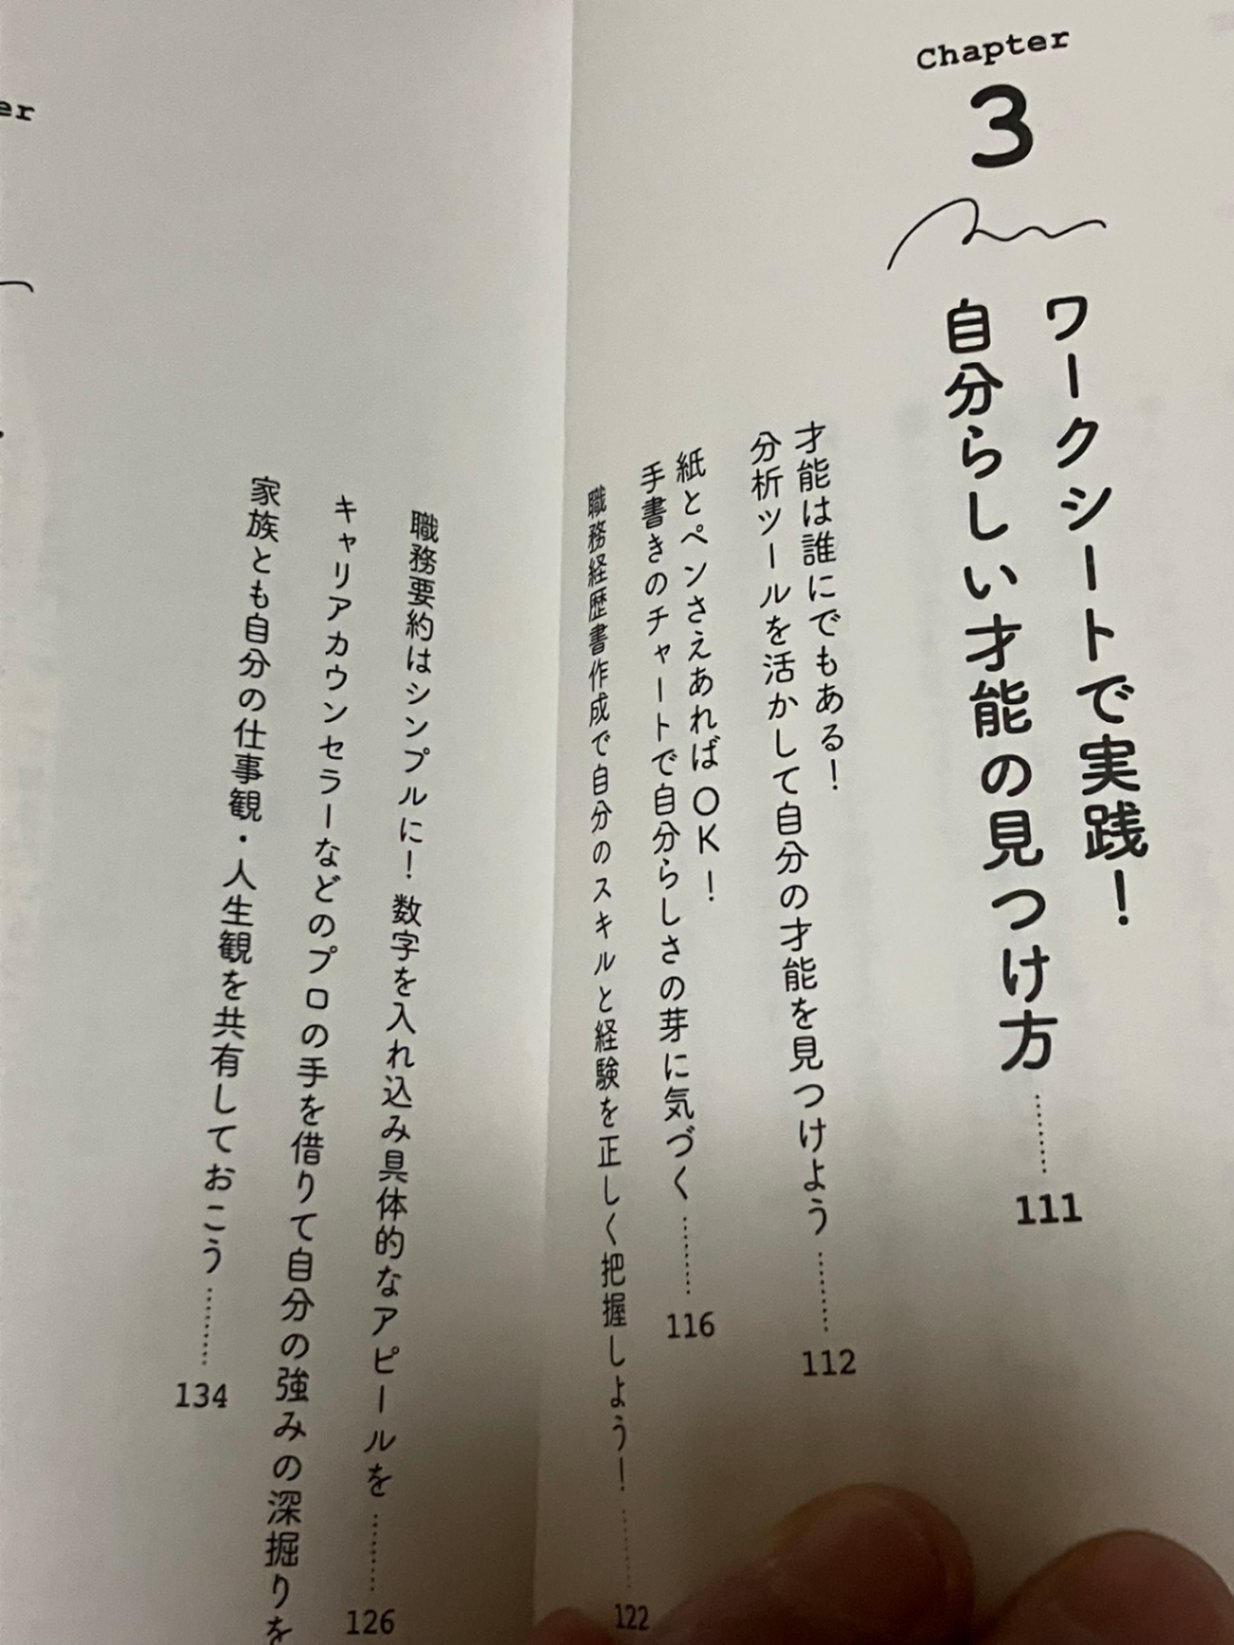 Chapter
3
ワークシートで実践！
自分らしい才能の見つけ方………111
才能は誰にでもある！
分析ツールを活かして自分の才能を見つけよう………112
紙とペンさえあればOK！
手書きのチャートで自分らしさの芽に気づく………116
職務経歴書作成で自分のスキルと経験を正しく把握しよう！………122
職務要約はシンプルに！数字を入れ込み具体的なアピールを………126
キャリアカウンセラーなどのプロの手を借りて自分の強みの深掘りを
家族とも自分の仕事観・人生観を共有しておこう………134
er